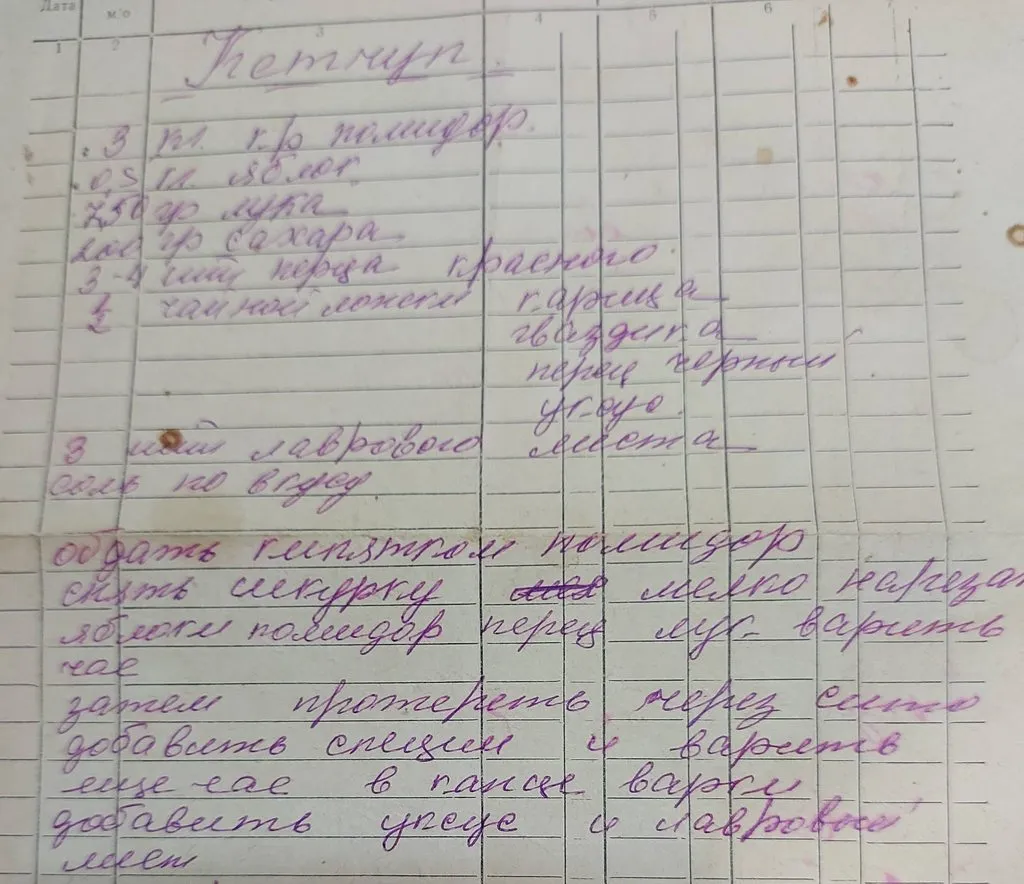 Дата
м/о
1 2 3 4 5 6 7
Кетчуп
3 кл. кр помидор.
0,5 кл. яблок
750 гр лука
200 гр сахара
3-4 шт перца красного
1/2 чайной ложки карица
гваздика
перец черный
уксус
3 шт лаврового листа
соль по вкусу
обдать кипятком помидор
снять шкурку мелко нареза
яблоки помидор перец лук варить
час
затем протереть через сито
добавить специи и варить
еще час в канце варки
добавить уксус и лавровый
лист